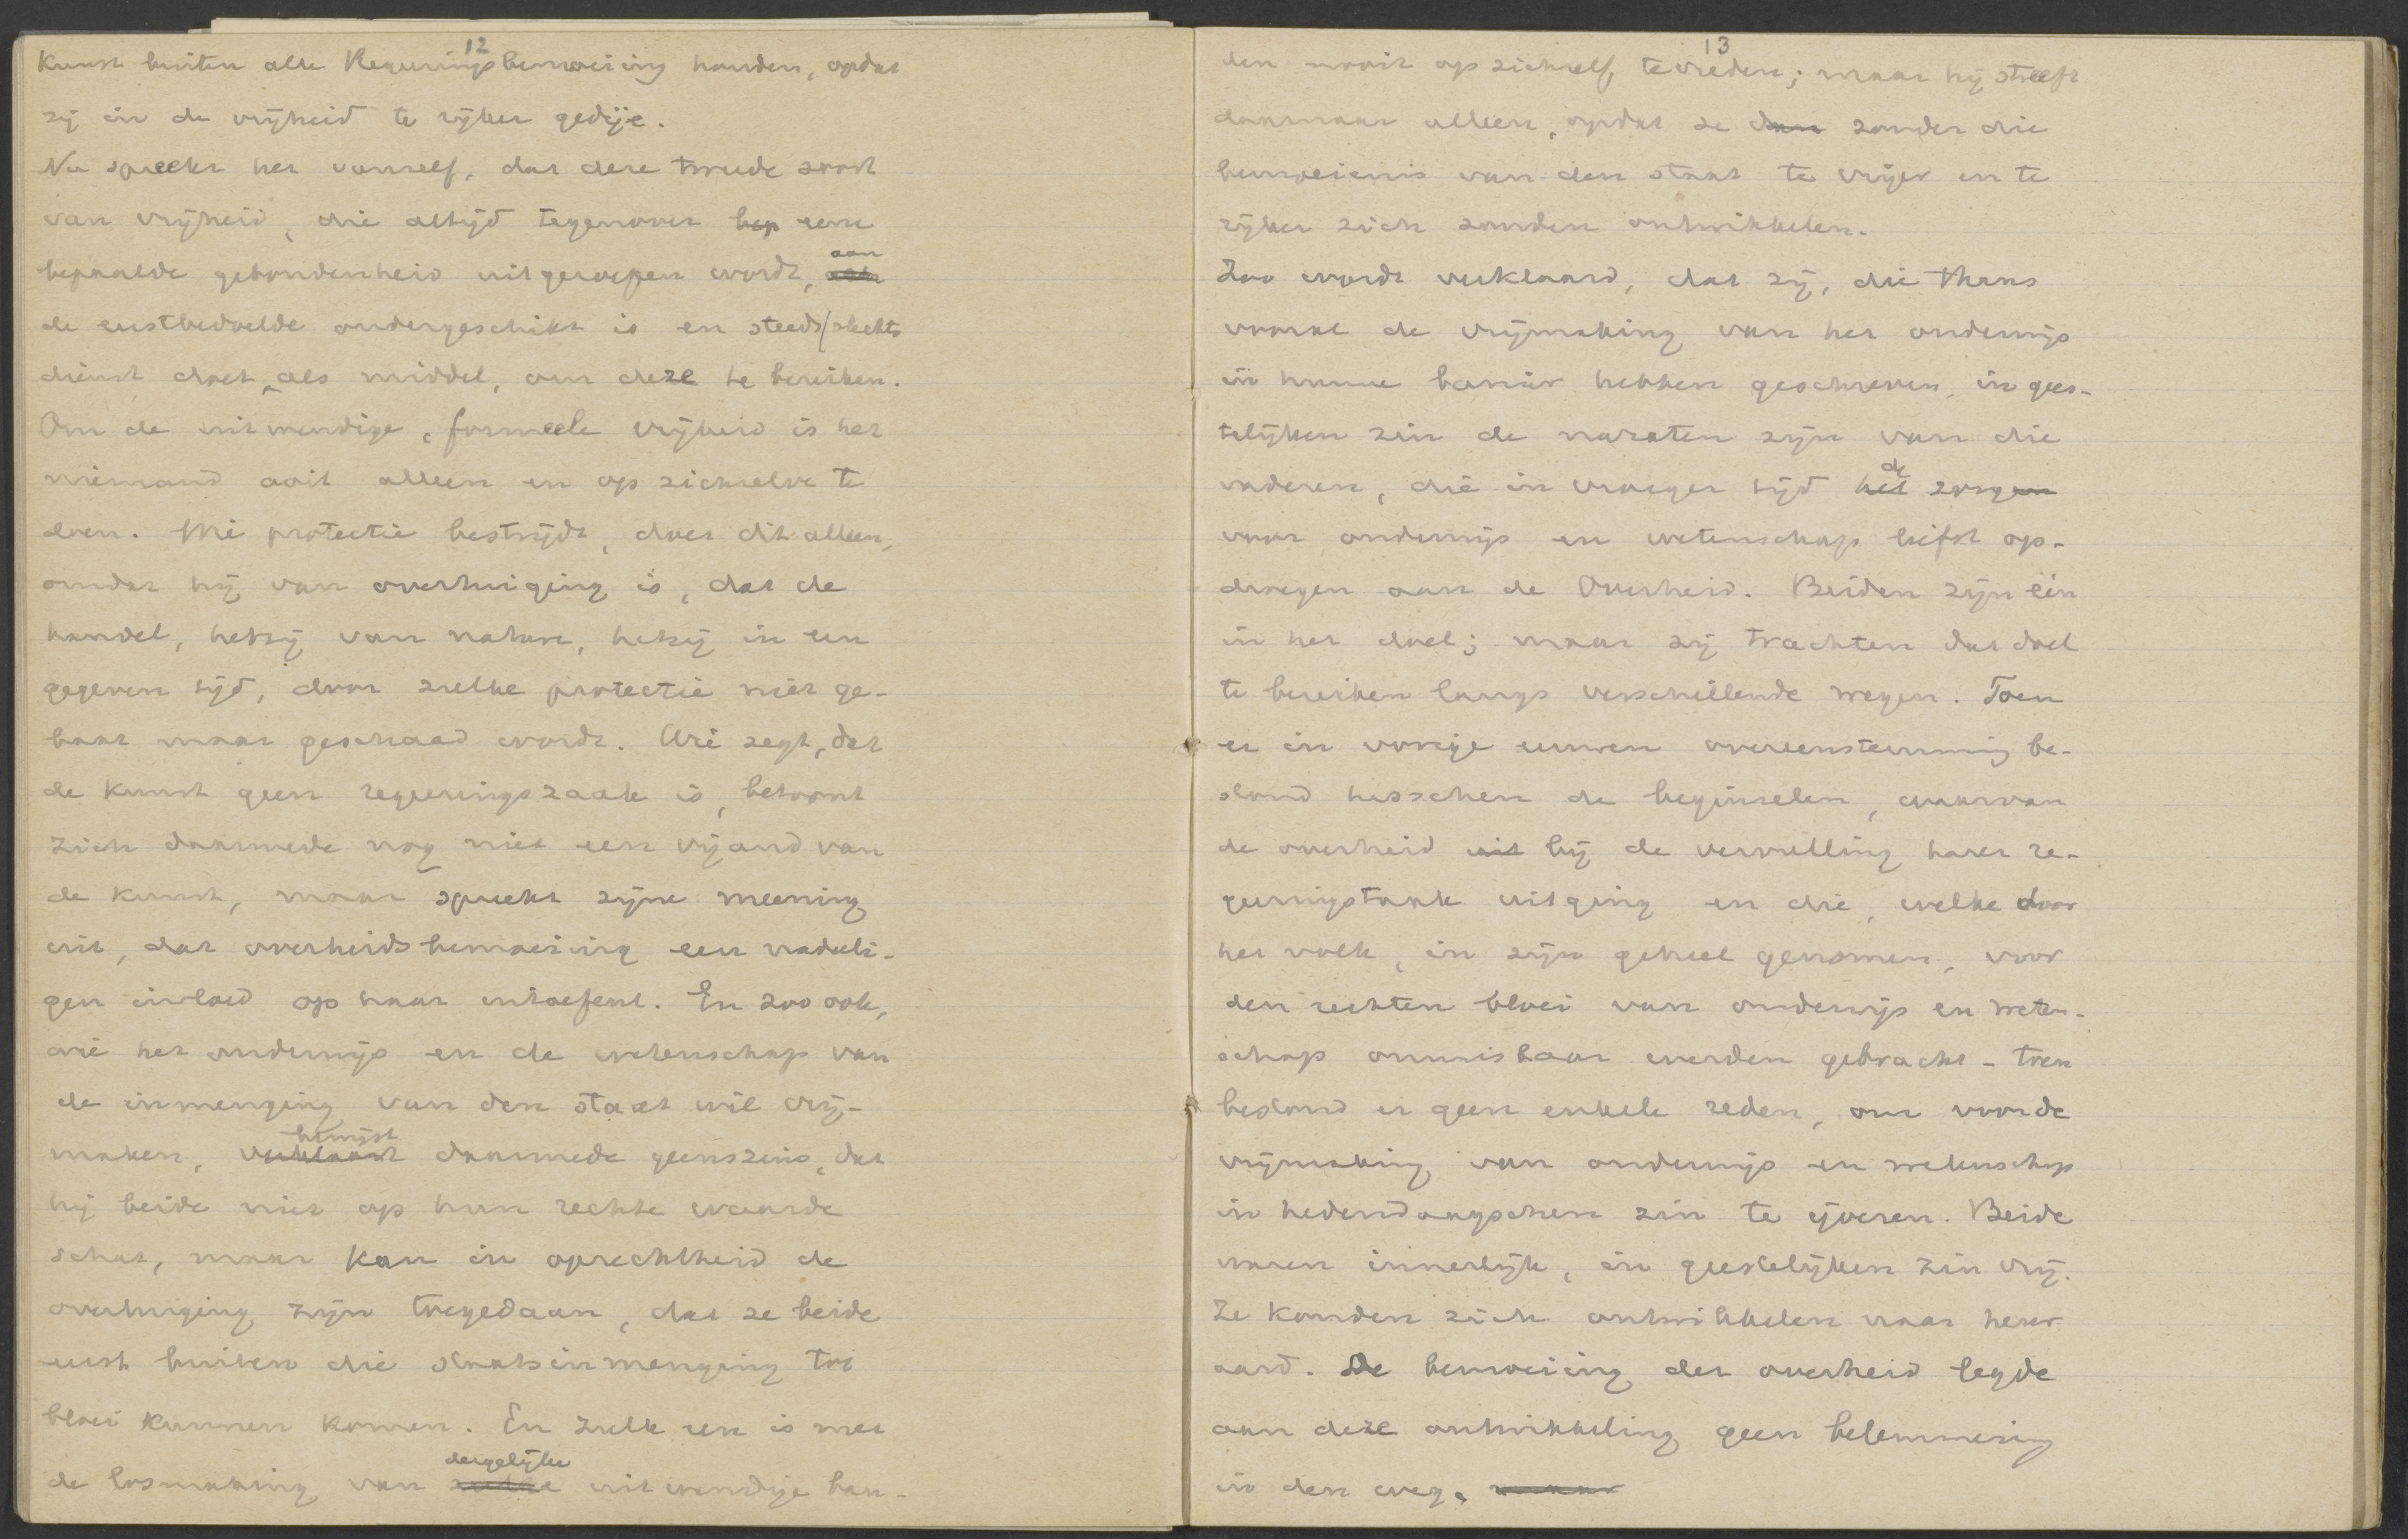 12
Kunst buiten alle Regeeringsbemoeiing houden, opdat
zij in de vrijheid te rijker gedije.
Nu spreekt het vanzelf, dat deze tweede soort
van vrijheid, die altijd tegenover bep eene
bepaalde gebondenheid uitgeroepen wordt, aan
de eerstbedoelde ondergeschikt is en steeds/slechts
dienst doet als middel, om deze te bereiken.
Om de uitwendige, formeele vrijheid is het
niemand ooit alleen en op zichzelve te
doen. Wie protectie bestrijdt, doet dit alleen,
omdat hij van overtuiging is, dat de
handel, hetzij van nature, hetzij in een
gegeven tijd, door zulke protectie niet ge-
baat maar geschaad wordt. Wie zegt, dat
de kunst geen regeeringszaak is, betoont
zich daarmede nog niet een vijand van
de kunst, maar spreekt zijne meening
uit, dat overheidsbemoeiing een nadeeli-
gen invloed op haar uitoefent. En zoo ook,
wie het onderwijs en de wetenschap van
de inmenging van den staat wil vrij-
bewijst
maken, verklaart daarmede geenszins, dat
hij beide niet op hun rechte waarde
schat, maar kan in oprechtheid de
overtuiging zijn toegedaan, dat ze beide
eerst buiten die staatsinmenging tot
bloei kunnen komen. En zulk een is met
dergelijke
de losmaking van zulke uitwendige ban-
13
den nooit op zichzelf tevreden; maar hij streeft
daarnaar alleen, opdat ze dan zonder die
bemoeienis van den staat te vrijer en te
rijker zich zouden ontwikkelen.
Zoo wordt verklaard, dat zij, die thans
vooral de vrijmaking van het onderwijs
in hunne banier hebben geschreven, in gees-
telijken zin de nazaten zijn van die
de
vaderen, die in vroeger tijd het zorgen
voor onderwijs en wetenschap liefst op-
droegen aan de Overheid. Beiden zijn één
in het doel; maar zij trachten dat doel
te bereiken langs verschillende wegen. Toen
er in vorige eeuwen overeenstemming be-
stond tusschen de beginselen, waarvan
de overheid uit bij de vervulling harer re-
geeringstaak uitging en die, welke door
het volk, in zijn geheel genomen, voor
den rechten bloei van onderwijs en weten-
schap onmisbaar werden geacht - toen
bestond er geen enkele reden, om voor de
vrijmaking van onderwijs en wetenschap
in hedendaagschen zin te ijveren. Beide
waren innerlijk, in geestelijken zin vrij.
Ze konden zich ontwikkelen naar heur
aard. De bemoeiing der overheid legde
aan deze ontwikkeling geen belemmering
in den weg. maar